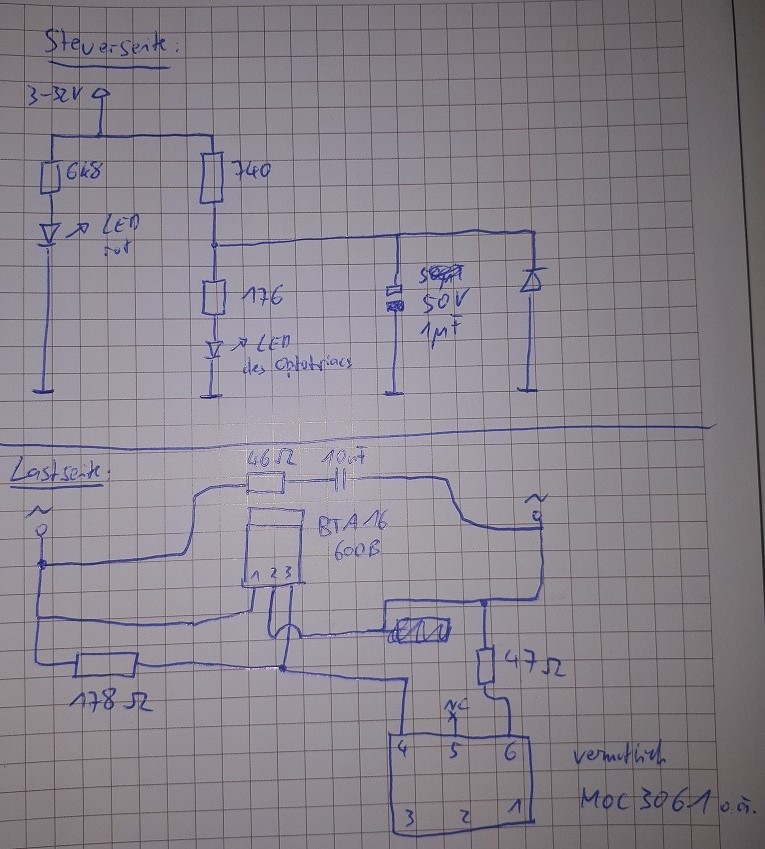 Steuerseite:
3-32V
6k8
740
LED
rot
50V
1µF
176
LED
des Optotriacs
Lastseite:
46Ω 10nF
~
~
BTA16
600B
1 2 3
178Ω
47Ω
NC
X
4 5 6
3 2 1
vermutlich
MOC3061 o.ä.